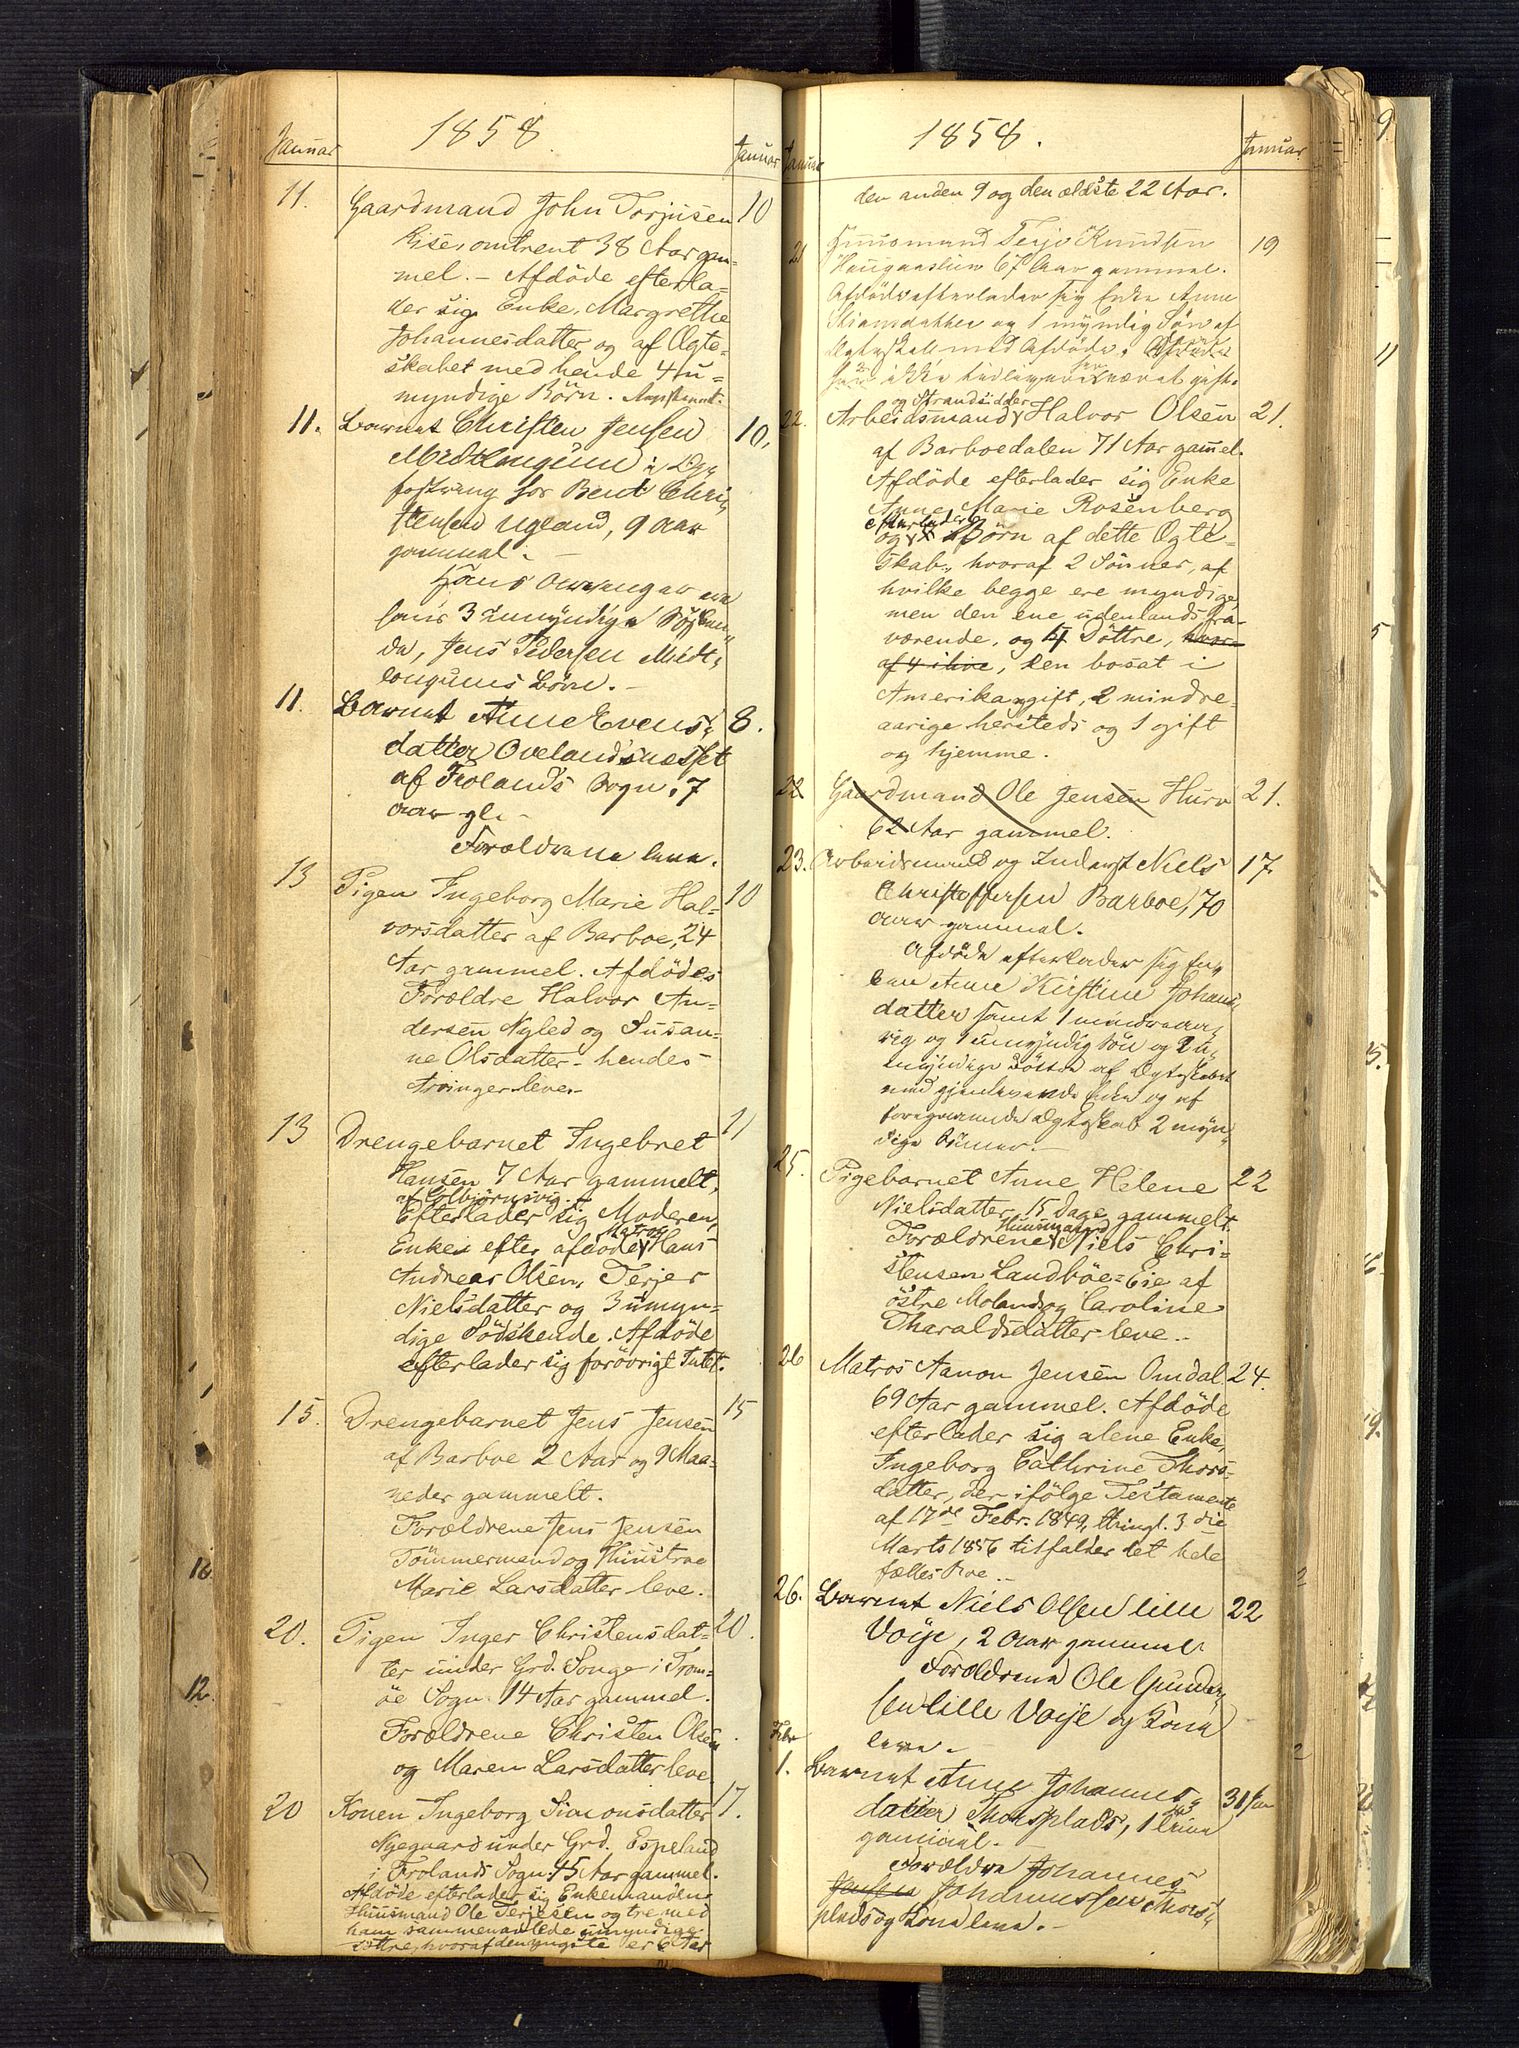 1858
Januar
Januar
11. Gaardmand John Torjusen 10
Riise, omtrent 38 Aar gam-
mel. - Afdöde efterla-
der sig Enke, Margrethe
Johannesdatter og af Ægte-
skabet med hende 4 u-
myndige Börn.
11. Barnet Christen Jensen 10.
i Op-
fostring hos Bent Chri-
stensen Ugland, 9 Aar
gammel. -
Hans Arvinger ere
hans 3 umyndige Södsken-
de, Jens Pedersen Midt-
Börn. -
11. Barnet Anne Evens- 8.
datter Ovelandsnesset
af Frolands Sogn, 7
Aar gl. -
Forældrene leve.
13 Pigen Ingeborg Marie Hal- 10
vorsdatter af Barboe, 24
Aar gammel. Afdödes
Forældre Halvor An-
dersen Nyled og Susan-
ne Olsdatter - hendes
Arvinger leve. -
13 Drengebarnet Ingebret 11
Hansen 7 Aar gammelt,
af Colbjörnsvig.
Efterlader sig Moderen,
Matros
Enke efter afdöde Hans
Andreas Olsen, Terjer
Nielsdatter og 3 umyn-
dige Södskende. Afdöde
efterlader sig forövrigt Intet.
15. Drengebarnet Jens Jensen 15
af Barboe 2 Aar og 9 Maa-
neder gammelt.
Forældrene Jens Jensen
Tömmermand og Huustroe
Marie Larsdatter leve.
20. Pigen Inger Christensdat- 20.
ter under Grd. Songe i Trom-
öe Sogn. 14 Aar gammel.
Forældrene Christen Olsen
og Maren Larsdatter leve
20 Konen Ingeborg Simonsdatter 17.
Nygaard under Grd. Espeland
i Frolands Sogn. 45 Aar gammel.
Afdöde efterlader sig Enkemanden
Huusmand Ole Terjesen og tre med
ham sammenavlede umyndige
döttre, hvoraf den yngste er 6 Aar
1858.
Januar
Januar
den anden 9 og den ældste 22 Aar.
21 Huusmand Terje Knudsen 19
Haugaaslien 67 Aar gammel.
Afdöde efterlader sig Enke Anne
og 1 myndig Sön af
Ægteskab med Afdöde.
ikke tidligere været gift.
og Strandsidder
22. Arbeidsmand Halvor Olsen 21.
af Barboedalen 71 Aar gammel.
Afdöde efterlader sig Enke
Anne Marie Rosenberg
efterlader
og Börn af dette Ægte-
skab, hvoraf 2 Sönner, af
hvilke begge ere myndige,
men den ene udenlands fra-
værende, og 4 Döttre, hvor-
af 4 ilive, een bosat i
Amerika gift, 2 mindre-
aarige hersteds og 1 gift
og hjemme.
22 Gaardmand Ole Jensen Hurv 21.
62 Aar gammel.
23. Arbeidsmand og Inderst Niels 17.
Christoffersen Barboe, 70
Aar gammel.
Afdöde efterlader sig En-
ken Anne Kirstine Johans-
datter samt 1 mindreaa-
rig og 1 umyndig Sön og 2 u-
myndige Döttre af Ægteskabet
med gjenlevende Enke og af
foregaaende Ægteskab 2 myn-
dige Sönner. -
25. Pigebarnet Anne Helene 22
Nielsdatter, 15 Dage gammelt.
Huusmand
Forældrene Niels Chri-
stensen Landböe-Eie af
östre Moland og Caroline
Tharaldsdatter leve. -
26 Matros Aanon Jensen Omdal 24.
69 Aar gammel. Afdöde
efterlader sig alene Enke,
Ingeborg Cathrine Thors-
datter, der ifölge Testamente
af 17de Febr. 1849, thingl. 3die
Marts 1856 tilfalder det hele
fælles Boe. -
26. Barnet Niels Olsen lille 22
Voije, 2 Aar gammel.
Forældrene Ole Gunder-
sen lille Voije og Kone
leve. -
Febr
1. Barnet Anne Johannes- 31 Jan
datter Thorsplads, 1
gammel. -
Forældre Johannes
Jensen Johannessen Thors-
plads og Kone leve. -